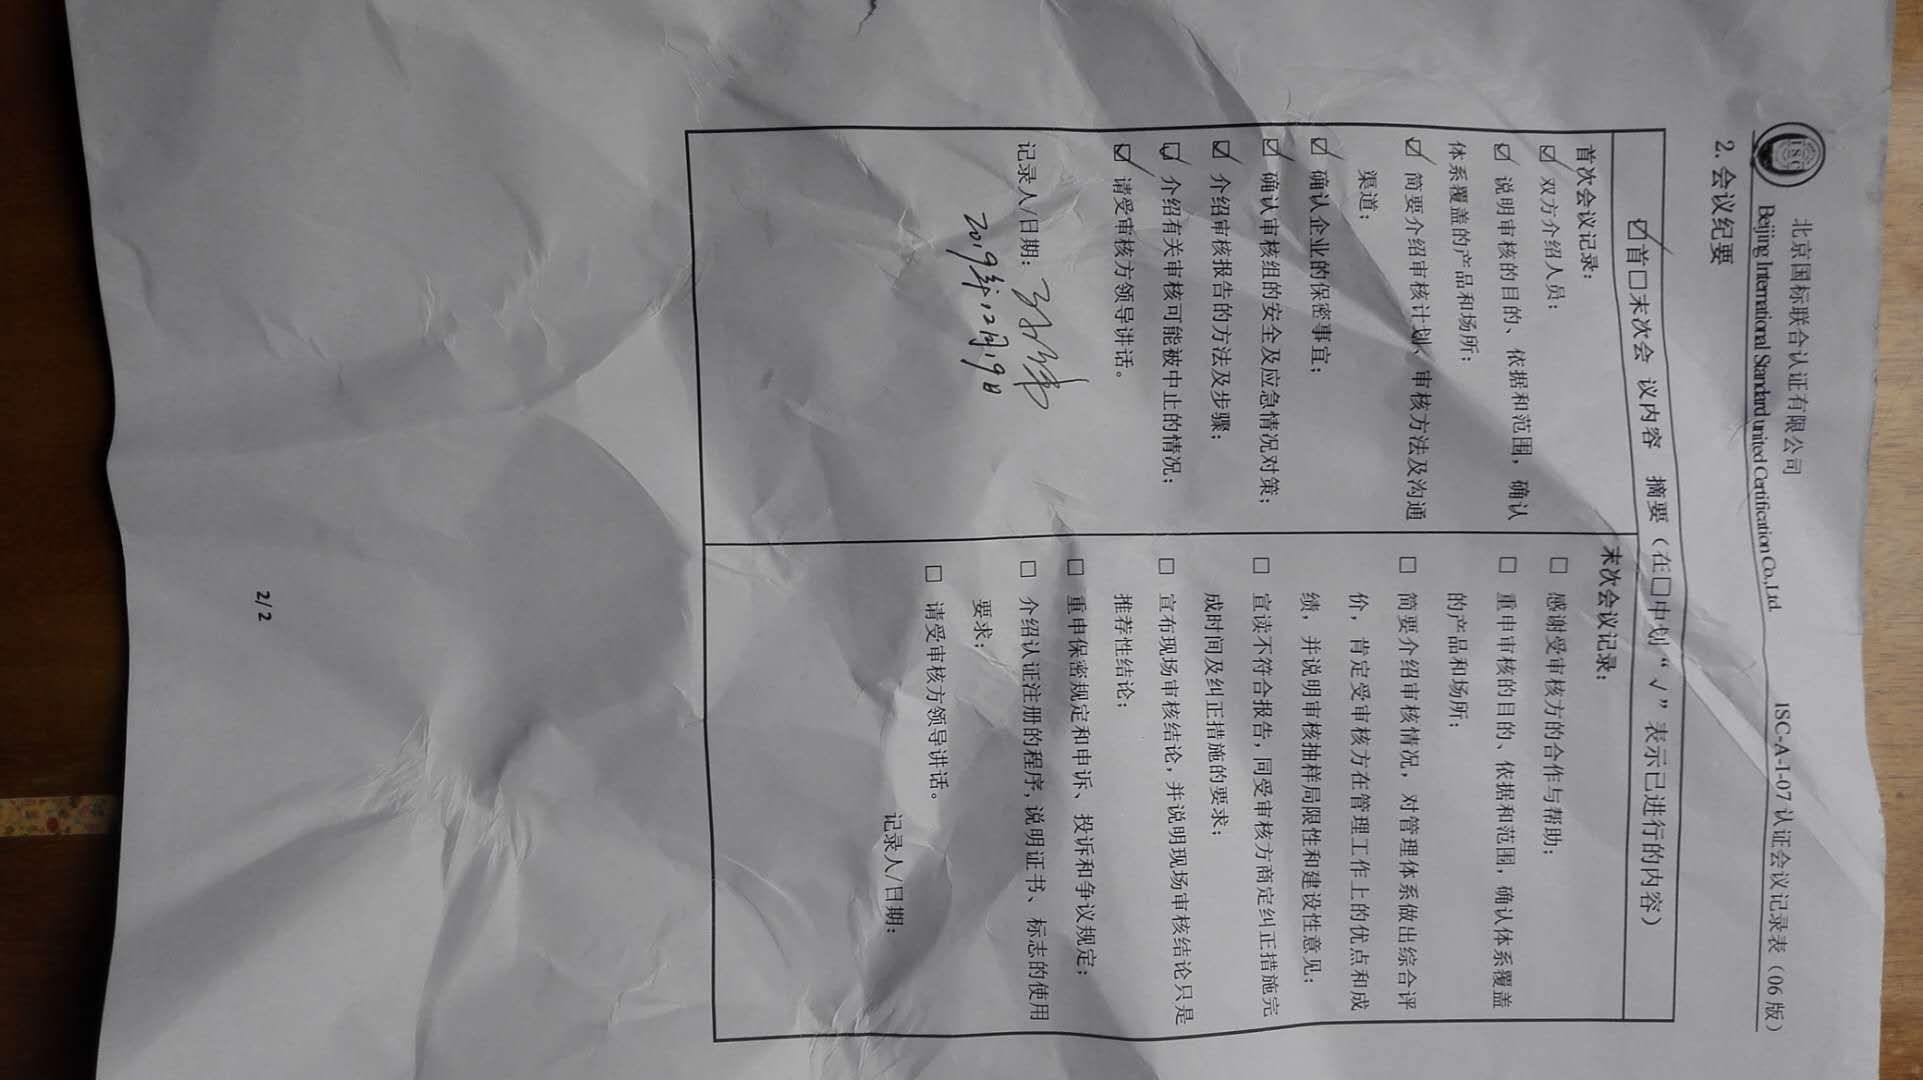 ISC
北京国标联合认证有限公司
Beijing International Standard united Certification Co.,Ltd.
ISC-A-I-07认证会议记录表（06版）
2. 会议纪要
☑首□末次会 议内容 摘要（在□中划“√”表示已进行的内容）
首次会议记录：
☑ 双方介绍人员；
☑ 说明审核的目的、依据和范围，确认
体系覆盖的产品和场所；
☑ 简要介绍审核计划、审核方法及沟通
渠道；
☑ 确认企业的保密事宜；
☑ 确认审核组的安全及应急情况对策；
☑ 介绍审核报告的方法及步骤；
☑ 介绍有关审核可能被中止的情况；
☑ 请受审核方领导讲话。
记录人/日期：
2019年12月19日
末次会议记录：
□ 感谢受审核方的合作与帮助；
□ 重申审核的目的、依据和范围，确认体系覆盖
的产品和场所；
□ 简要介绍审核情况，对管理体系做出综合评
价，肯定受审核方在管理工作上的优点和成
绩，并说明审核抽样局限性和建设性意见；
□ 宣读不符合报告，同受审核方商定纠正措施完
成时间及纠正措施的要求；
□ 宣布现场审核结论，并说明现场审核结论只是
推荐性结论；
□ 重申保密规定和申诉、投诉和争议规定；
□ 介绍认证注册的程序，说明证书、标志的使用
要求；
□ 请受审核方领导讲话。
记录人/日期：
2/2